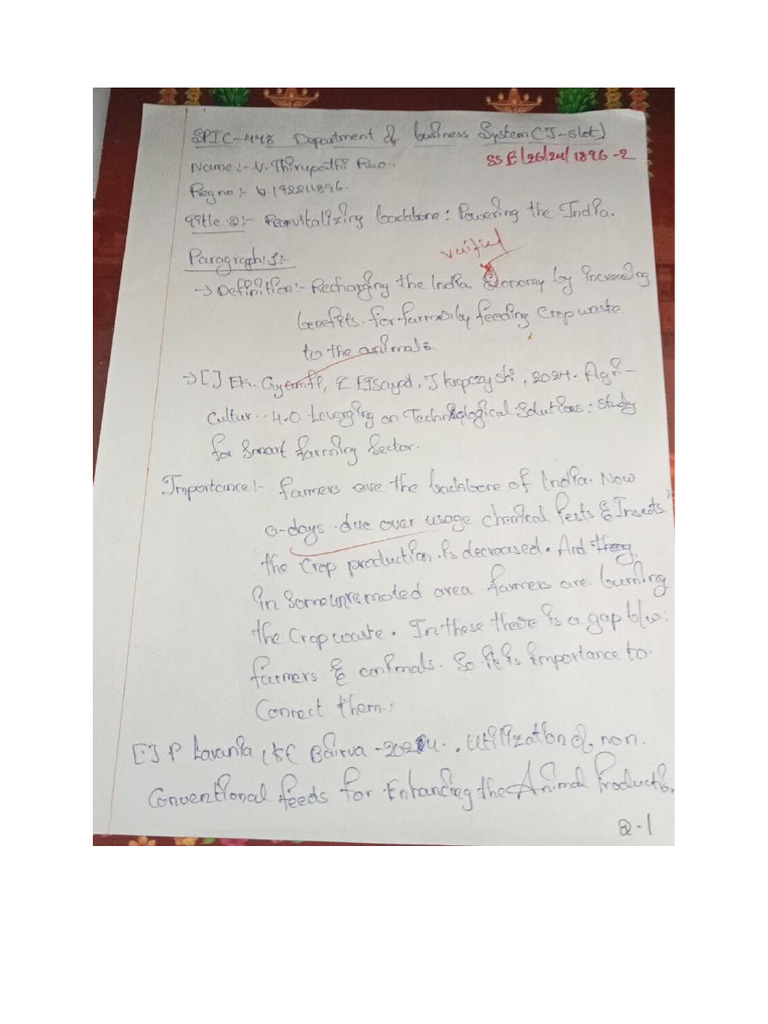 SPIC-448 Department of business System (J-slot)
SSE/26/24/1896-2
Name:- V. Thirupathi Rao..
Reg no:- 192211896.
Title 2:- Revitalizing backbone: Powering the India.
verified
Paragraph:1:-
-> Definition:- Recharging the India Economy by increasing
benefits for farmer by feeding Crop waste
to the animals
-> [] Ek. Gyamfi, E ElSayed, J kropczyski, 2024. Agri-
Cultur.. 4.0 Leverging on Technological Solutions: Study
for Smart farming Sector.
Importance:- farmers are the backbone of India. Now
a-days due over usage chemical Pests & Insects
the Crop production is decreased. And they
in some unremoted area farmers are burning
the Crop waste. In these there is a gap b/w:
farmers & animals. So it is importance to
Connect them.
[] P Lavania, KC Bairva - 2024. Utilization of non.
Conventional feeds for Enhancing the Animal Production
2-1